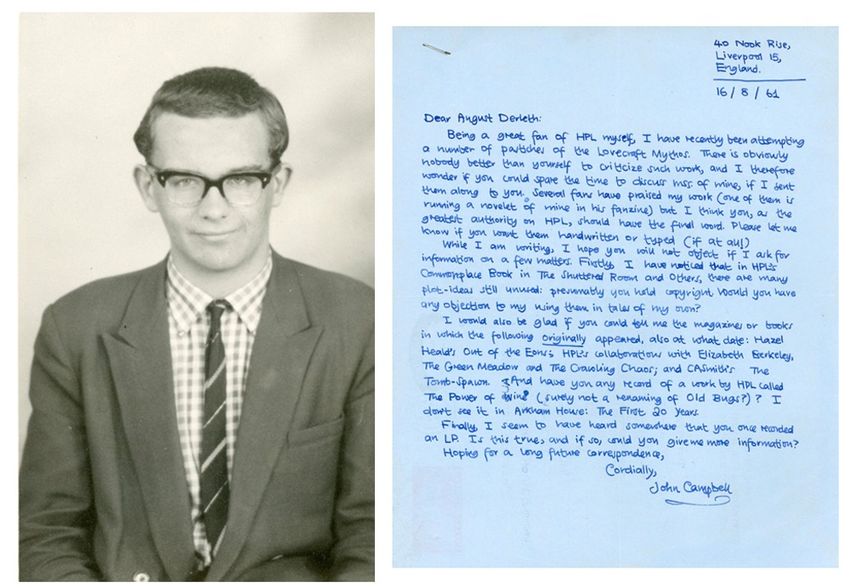 40 Nook Rise,
Liverpool 15,
England.
16 / 8 / 61
Dear August Derleth:
Being a great fan of HPL myself, I have recently been attempting
a number of pastiches of the Lovecraft Mythos. There is obviously
nobody better than yourself to criticize such work, and I therefore
wonder if you could spare the time to discuss mss. of mine, if I sent
them along to you. Several fans have praised my work (one of them is
running a novelet of mine in his fanzine) but I think you, as the
greatest authority on HPL, should have the final word. Please let me
know if you want them handwritten or typed (if at all)
While I am writing, I hope you will not object if I ask for
information on a few matters. Firstly, I have noticed that in HPL's
Commonplace Book in The Shuttered Room and Others, there are many
plot-ideas still unused: presumably you hold copyright. Would you have
any objection to my using them in tales of my own?
I would also be glad if you could tell me the magazines or books
in which the following originally appeared, also at what date: Hazel
Heald's Out of the Eons; HPL's collaborations with Elizabeth Berkeley,
The Green Meadow and The Crawling Chaos; and CASmith's The
Tomb-Spawn. And have you any record of a work by HPL called
The Power of Wine? (surely not a renaming of Old Bugs?)? I
don't see it in Arkham House: The First 20 Years.
Finally, I seem to have heard somewhere that you once recorded
an LP. Is this true, and if so, could you give me more information?
Hoping for a long future correspondence,
Cordially,
John Campbell